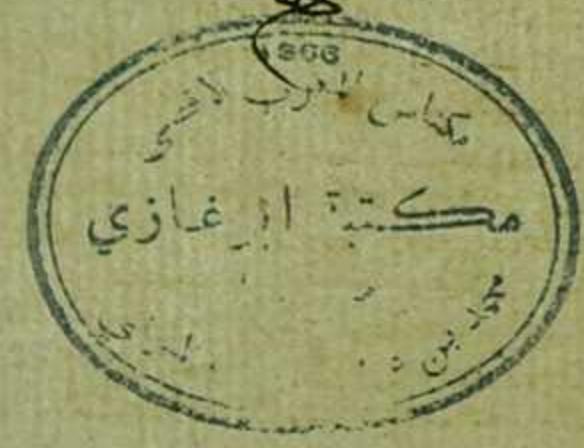 366
مكناس المغرب الاقصى
مكتبة ابن غازي
محمد بن